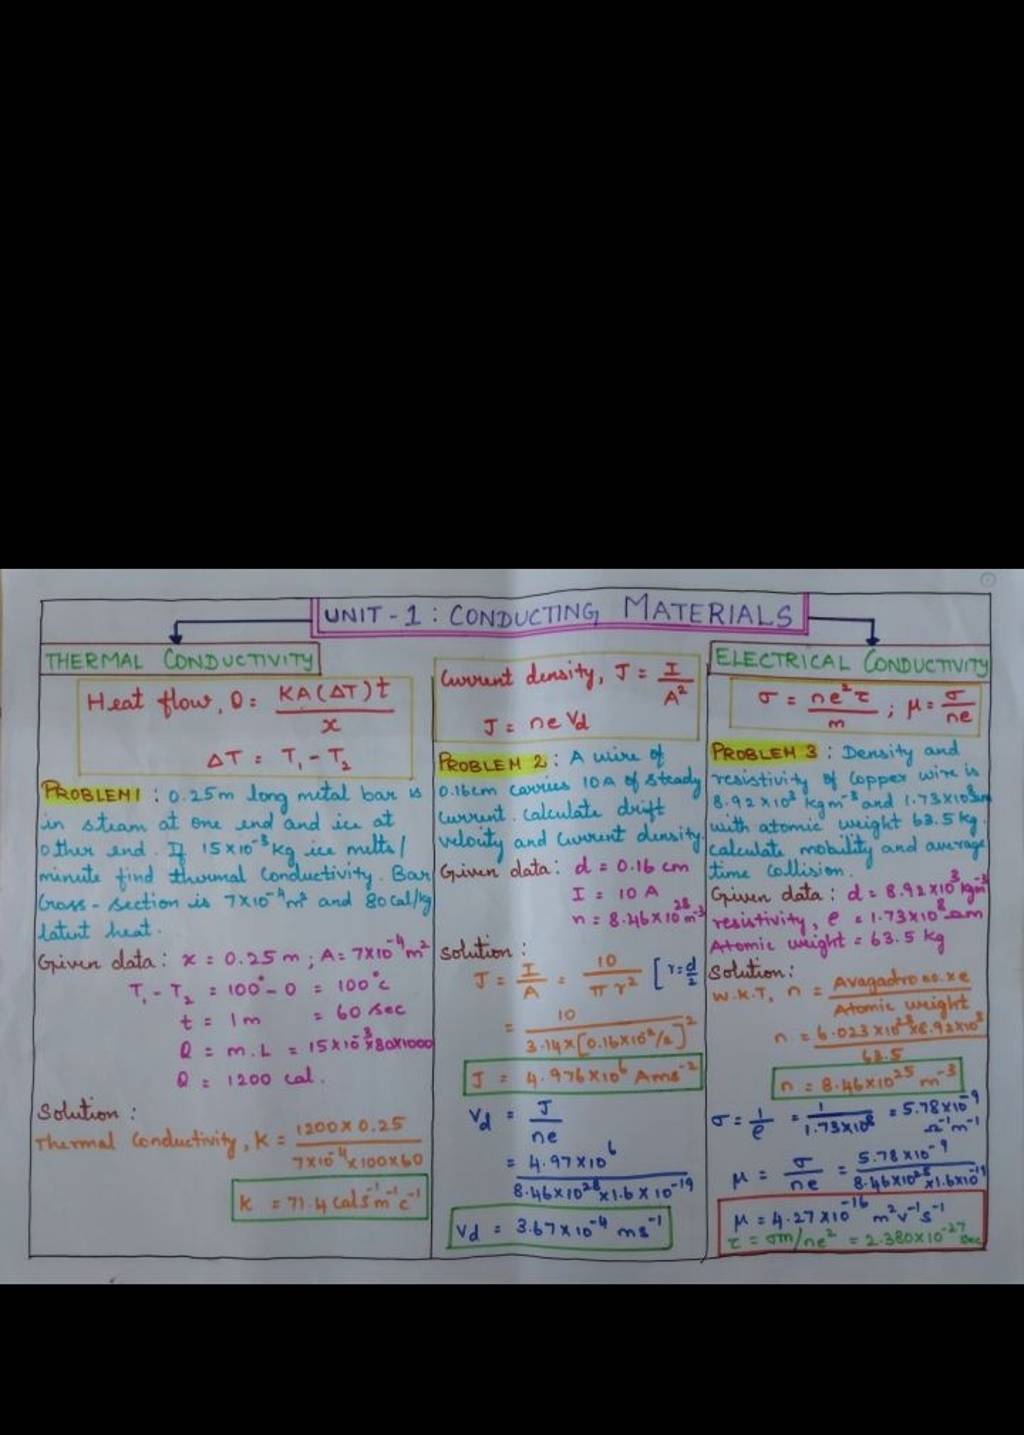 UNIT - 1 : CONDUCTING MATERIALS
THERMAL CONDUCTIVITY
Heat flow, Q = KA(ΔT)t / x
ΔT = T₁ - T₂
PROBLEM 1 : 0.25m long metal bar is
in steam at one end and ice at
other end. If 15×10⁻³ kg ice melts/
minute find thermal conductivity. Bar
Cross-section is 7×10⁻⁴m² and 80 cal/kg
latent heat.
Given data : x = 0.25 m ; A = 7×10⁻⁴ m²
T₁ - T₂ = 100° - 0 = 100°c
t = 1m = 60 sec
Q = m.L = 15×10⁻³×80×1000
Q = 1200 cal.
Solution :
Thermal Conductivity, K = 1200 × 0.25 / 7×10⁻⁴×100×60
K = 71.4 cal s⁻¹m⁻¹c⁻¹
Current density, J = I / A²
J = neVd
PROBLEM 2 : A wire of
0.16cm carries 10A of steady
current. Calculate drift
velocity and current density.
Given data : d = 0.16 cm
I = 10 A
n = 8.46×10²⁸m⁻³
Solution :
J = I / A = 10 / πr² [r = d/2
= 10 / 3.14×[0.16×10²/2]²
J = 4.976×10⁶ Ams⁻²
Vd = J / ne
= 4.97×10⁶ / 8.46×10²⁸×1.6×10⁻¹⁹
Vd = 3.67×10⁻⁴ ms⁻¹
ELECTRICAL CONDUCTIVITY
σ = ne²τ / m ; μ = σ / ne
PROBLEM 3 : Density and
resistivity of Copper wire is
8.92×10³ kgm⁻³ and 1.73×10⁸
with atomic weight 63.5 kg.
calculate mobility and average
time collision.
Given data : d = 8.92×10³ kgm⁻³
resistivity, ρ = 1.73×10⁸ Ωm
Atomic weight = 63.5 kg
Solution :
W.K.T, n = Avagadro no. × ρ / Atomic weight
n = 6.023×10²³×8.92×10³ / 63.5
n = 8.46×10²⁵ m⁻³
σ = 1/ρ = 1 / 1.73×10⁸ = 5.78×10⁻⁹
Ω⁻¹m⁻¹
μ = σ / ne = 5.78×10⁻⁹ / 8.46×10²⁵×1.6×10⁻¹⁹
μ = 4.27×10⁻¹⁶ m²v⁻¹s⁻¹
τ = σm/ne² = 2.380×10⁻²⁷ sec